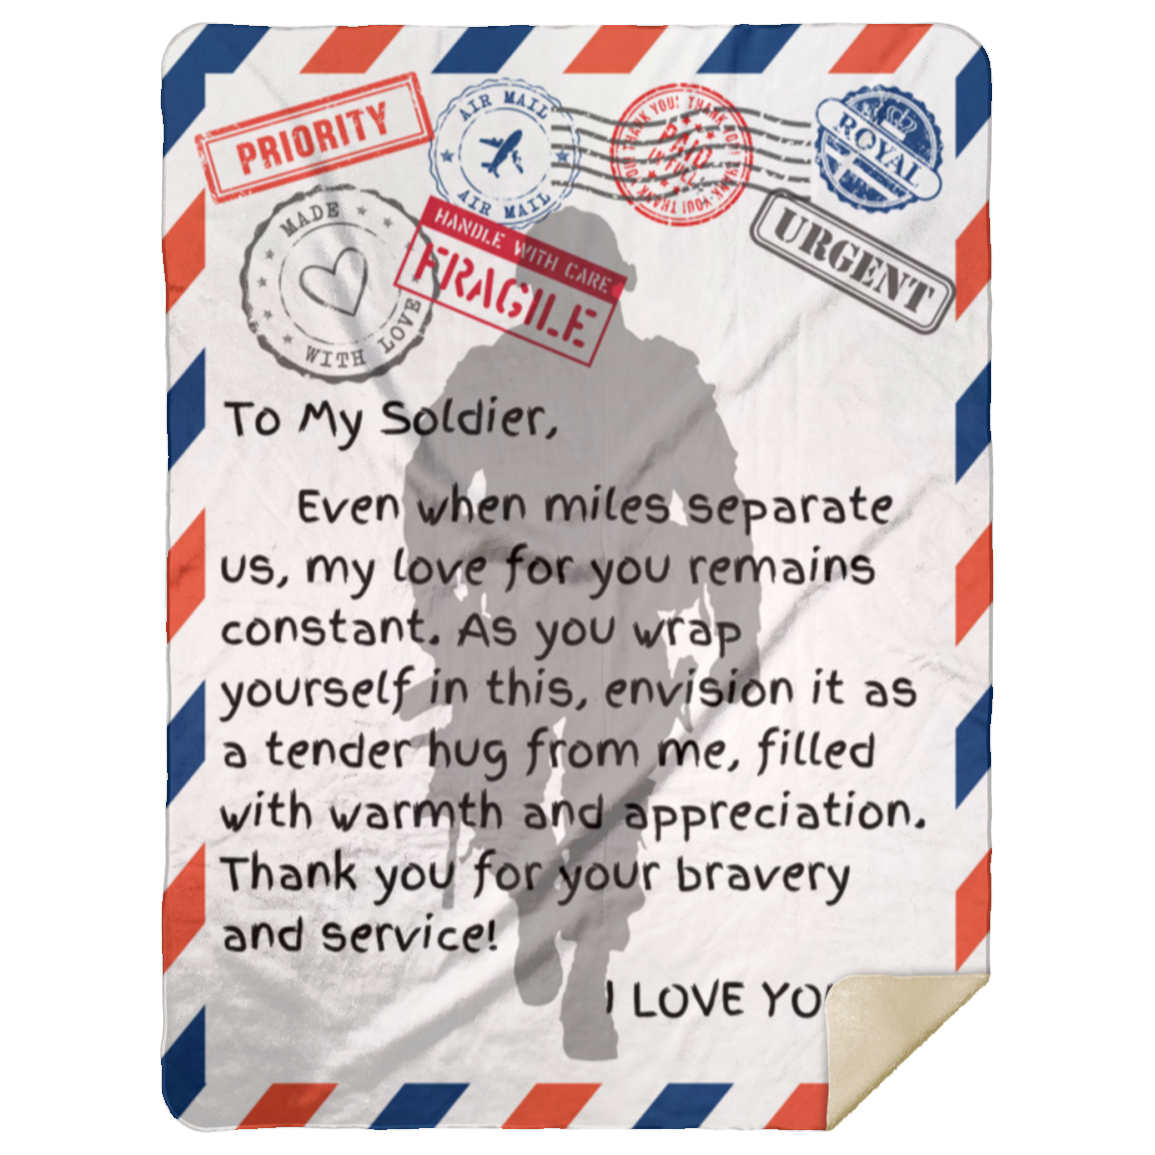 PRIORITY
AIR MAIL
AIR MAIL
THANK YOU! THANK YOU! THANK YOU! THANK YOU!
PAID
IN FULL
ROYAL
MADE
WITH LOVE
HANDLE WITH CARE
FRAGILE
URGENT
To My Soldier,
Even when miles separate
us, my love for you remains
constant. As you wrap
yourself in this, envision it as
a tender hug from me, filled
with warmth and appreciation.
Thank you for your bravery
and service!
I LOVE YO